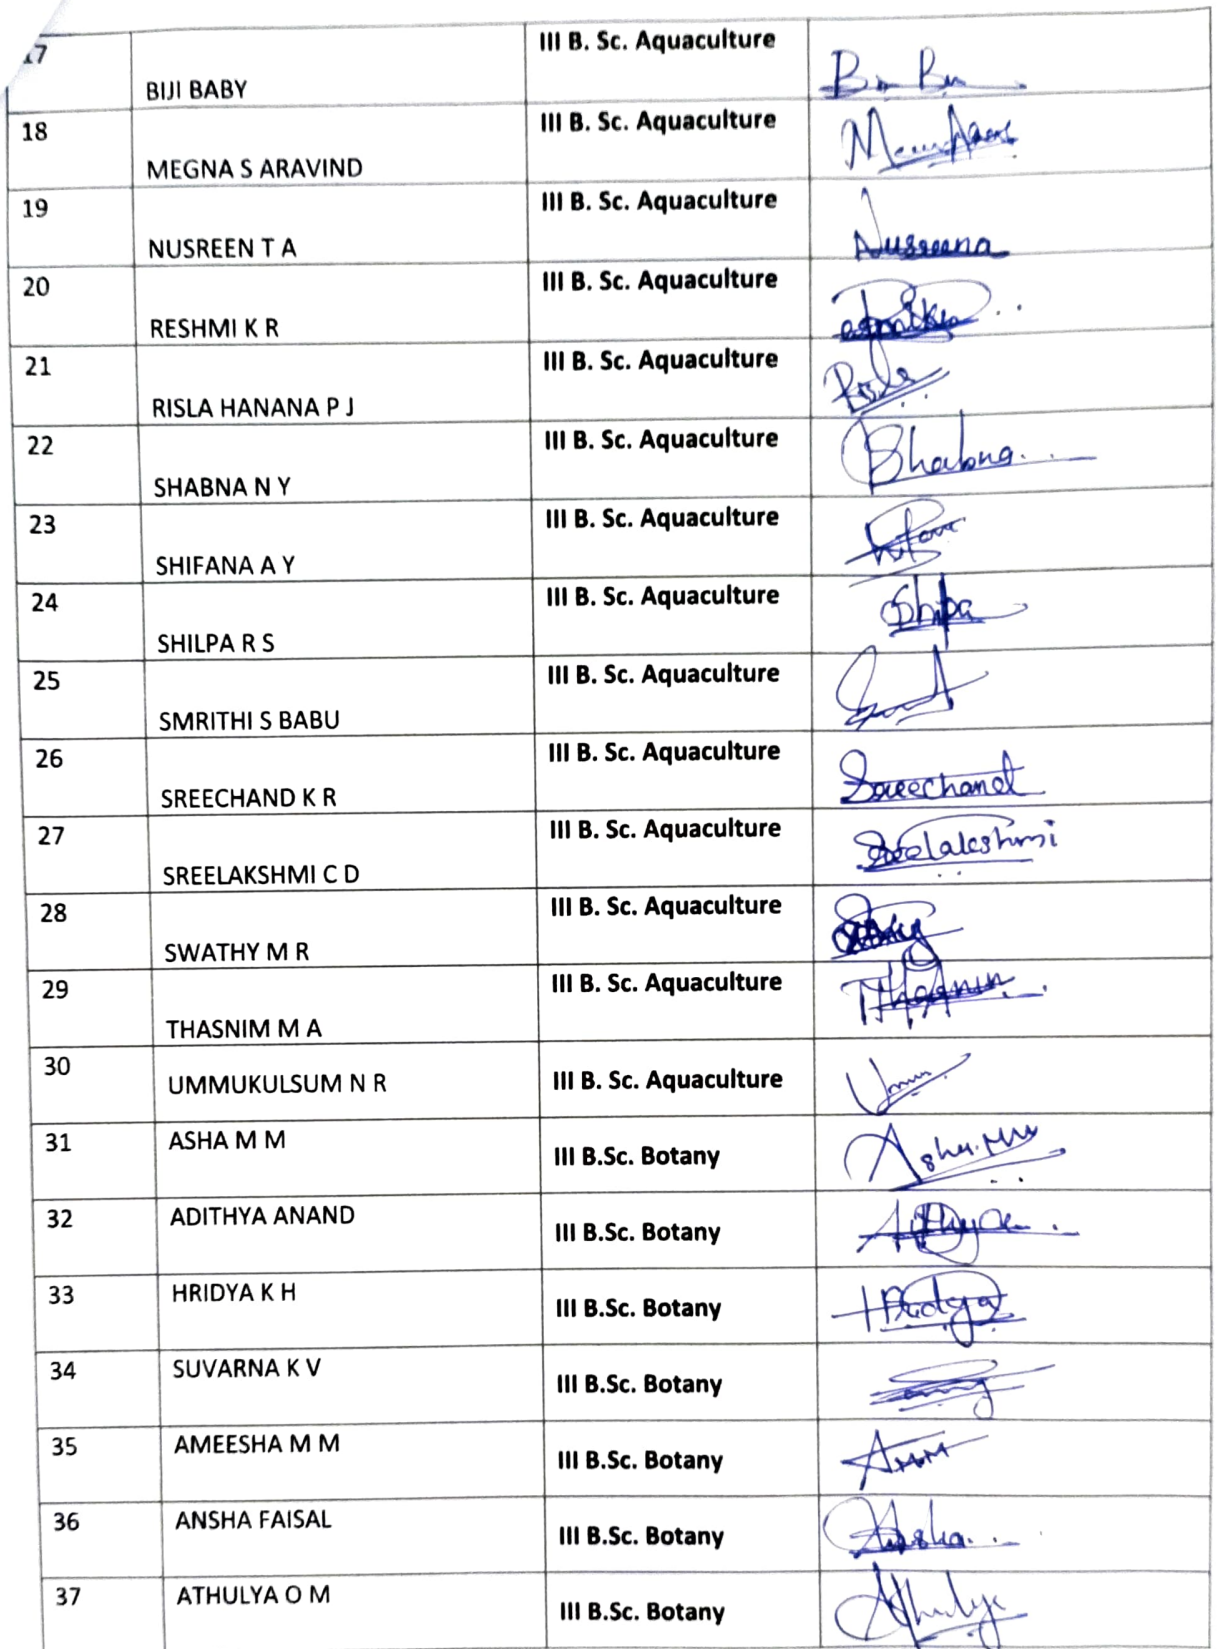 17 BIJI BABY III B. Sc. Aquaculture
18 MEGNA S ARAVIND III B. Sc. Aquaculture
19 NUSREEN T A III B. Sc. Aquaculture Nusreena
20 RESHMI K R III B. Sc. Aquaculture
21 RISLA HANANA P J III B. Sc. Aquaculture Risla
22 SHABNA N Y III B. Sc. Aquaculture Shabna
23 SHIFANA A Y III B. Sc. Aquaculture
24 SHILPA R S III B. Sc. Aquaculture
25 SMRITHI S BABU III B. Sc. Aquaculture
26 SREECHAND K R III B. Sc. Aquaculture Sreechand
27 SREELAKSHMI C D III B. Sc. Aquaculture Sreelakshmi
28 SWATHY M R III B. Sc. Aquaculture
29 THASNIM M A III B. Sc. Aquaculture
30 UMMUKULSUM N R III B. Sc. Aquaculture
31 ASHA M M III B.Sc. Botany Asha.MM
32 ADITHYA ANAND III B.Sc. Botany
33 HRIDYA K H III B.Sc. Botany Hridya
34 SUVARNA K V III B.Sc. Botany
35 AMEESHA M M III B.Sc. Botany
36 ANSHA FAISAL III B.Sc. Botany Ansha
37 ATHULYA O M III B.Sc. Botany Athulya